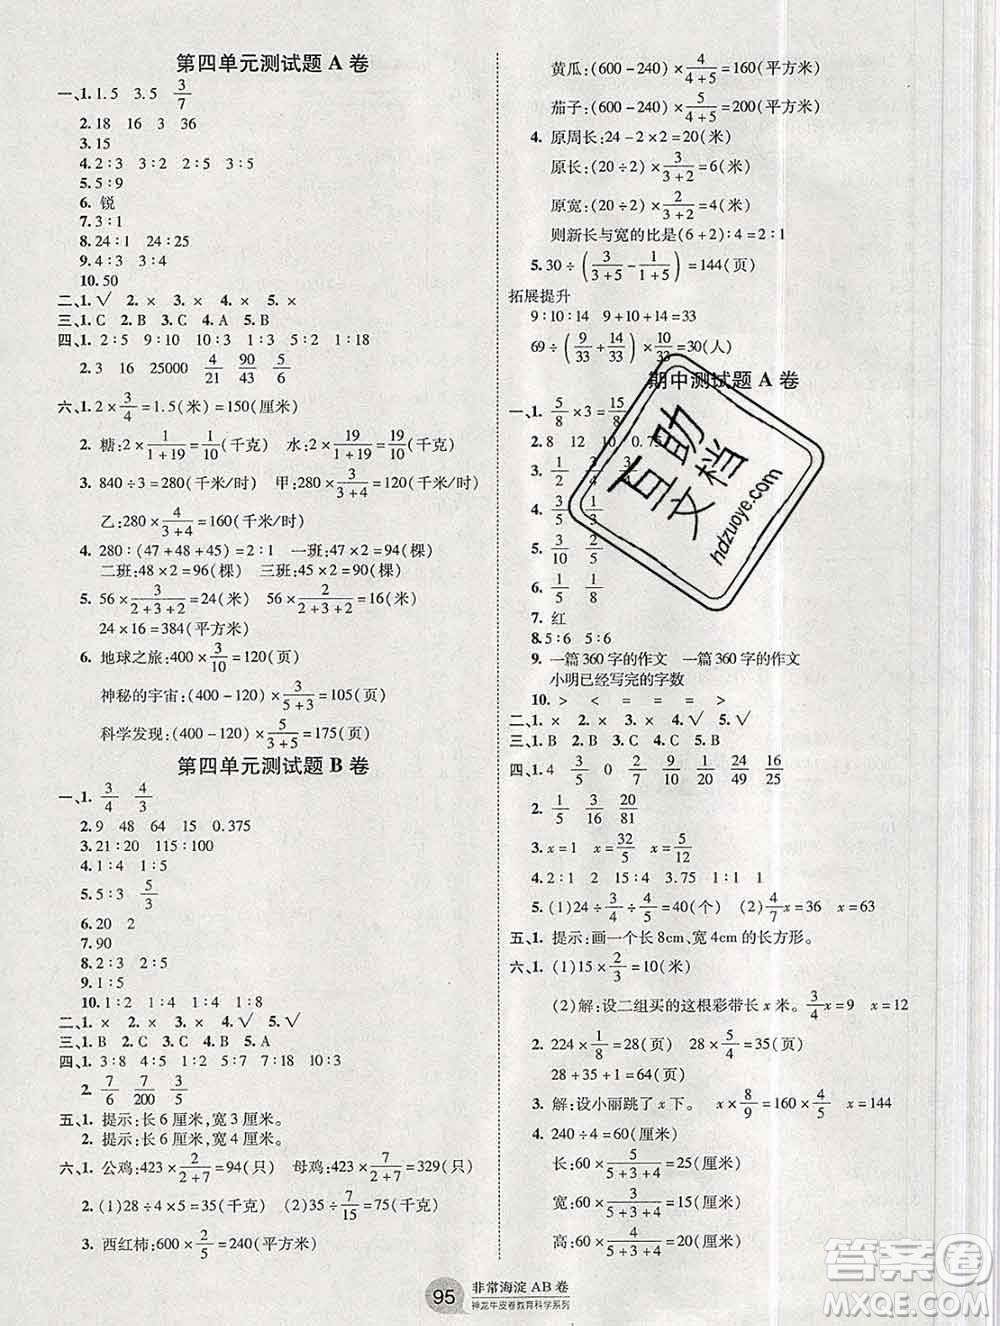 第四单元测试题 A 卷
一、1. 1.5 3.5 3/7
2. 18 16 3 36
3. 15
4. 2∶3 3∶2 2∶5 3∶5
5. 5∶9
6. 锐
7. 3∶1
8. 24∶1 24∶25
9. 4∶3 3∶4
10. 50
二、1. √ 2. × 3. × 4. × 5. ×
三、1. C 2. B 3. C 4. A 5. B
四、1. 2∶5 9∶10 10∶3 1∶3 5∶2 1∶18
2. 3 16 25000 4/21 90/43 5/6
六、1. 2×3/4=1.5(米)=150(厘米)
2. 糖:2×1/(1+19)=1/10(千克) 水:2×19/(1+19)=19/10(千克)
3. 840÷3=280(千米/时) 甲:280×3/(3+4)=120(千米/时)
乙:280×4/(3+4)=160(千米/时)
4. 280∶(47+48+45)=2∶1 一班:47×2=94(棵)
二班:48×2=96(棵) 三班:45×2=90(棵)
5. 56×3/(2+3+2)=24(米) 56×2/(2+3+2)=16(米)
24×16=384(平方米)
6. 地球之旅:400×3/10=120(页)
神秘的宇宙:(400-120)×3/(5+3)=105(页)
科学发现:(400-120)×5/(3+5)=175(页)
第四单元测试题 B 卷
一、1. 3/4 4/3
2. 9 48 64 15 0.375
3. 21∶20 115∶100
4. 1∶4 1∶5
5. 5∶3 5/3
6. 20 2
7. 90
8. 2∶3 2∶5
9. 1∶5
10. 1∶2 1∶4 1∶8
二、1. × 2. × 3. × 4. √ 5. √
三、1. B 2. C 3. C 4. B 5. A
四、1. 3∶8 4∶5 1∶2 7∶9 14∶13 10∶3
2. 7/6 7/200 3/5
五、1. 提示:长 6 厘米,宽 3 厘米。
2. 提示:长 6 厘米,宽 4 厘米。
六、1. 公鸡:423×2/(2+7)=94(只) 母鸡:423×7/(2+7)=329(只)
2. (1)28÷4×5=35(千克) (2)35÷7/15=75(千克)
3. 西红柿:600×2/5=240(平方米)
黄瓜:(600-240)×4/(4+5)=160(平方米)
茄子:(600-240)×5/(4+5)=200(平方米)
4. 原周长:24-2×2=20(米)
原长:(20÷2)×3/(3+2)=6(米)
原宽:(20÷2)×2/(3+2)=4(米)
则新长与宽的比是(6+2)∶4=2∶1
5. 30÷(3/(3+5)-1/(1+5))=144(页)
拓展提升
9∶10∶14 9+10+14=33
69÷(9/33+14/33)×10/33=30(人)
期中测试题 A 卷
一、1. 5/8×3=15/8
2. 8 12 10 0.75
3. 1/2 3/4 3/
4.
5. 3/10
6. 1/15
7. 红
8. 5∶6 5∶6
9. 一篇 360 字的作文 一篇 360 字的作文
小明已经写完的字数
10. > < = = = >
二、1. × 2. × 3. × 4. √ 5. √
三、1. B 2. B 3. A 4. C 5. B
四、1. 4 3/5 0 2/7 9/10 24/49 16/25
2. 1/5 3/5 20/81
3. x=1 x=32/5 x=5/12
4. 2∶1 15∶4 3.75 1∶1 1
5. (1)24÷3/4÷4/5=40(个) (2)4/7x=4 x=7
五、1. 提示:画一个长 8cm、宽 4cm 的长方形。
六、1. (1)15×2/3=10(米)
(2)解:设二组买的这根彩带长 x 米。 3/4x=9 x=12
2. 224×1/8=28(页) 28×5/4=35(页)
28+35+1=64(页)
3. 解:设小丽跳了 x 下。 x×8/9=160×4/5 x=144
4. 240÷4=60(厘米)
长:60×5/(5+3+4)=25(厘米)
宽:60×3/(5+3+4)=15(厘米)
高:60×4/(5+3+4)=20(厘米)
互助
文档
hdzuoye.com
答案圈
MXQE.COM
95 非常海淀 AB 卷
神龙牛皮卷教育科学系列